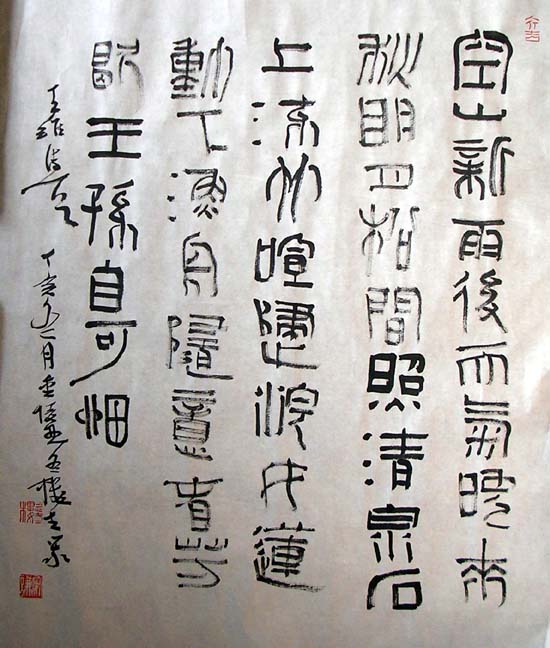 空山新雨後天氣晚來
秋明月松間照清泉石
上流竹喧歸浣女蓮
動下漁舟隨意春芳
歇王孫自可留
王維詩
丁亥月